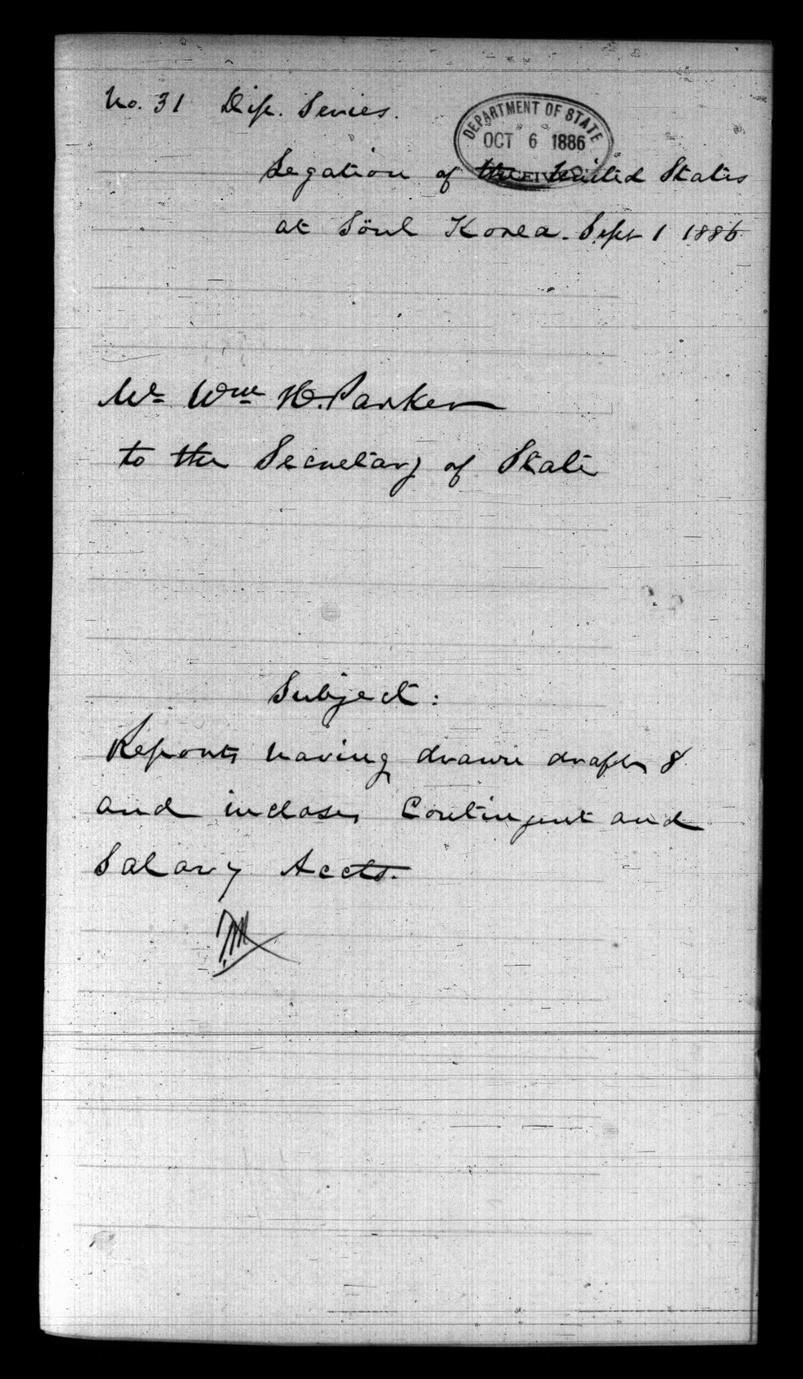 No. 31 Dip. Series.
DEPARTMENT OF STATE
OCT 6 1886
RECEIVED
Legation of the United States
at Söul Korea. Sept 1 1886
Mr Wm H. Parker
to the Secretary of State
Subject:
Reports having drawn drafts 8
and incloses Contingent and
Salary Accts.